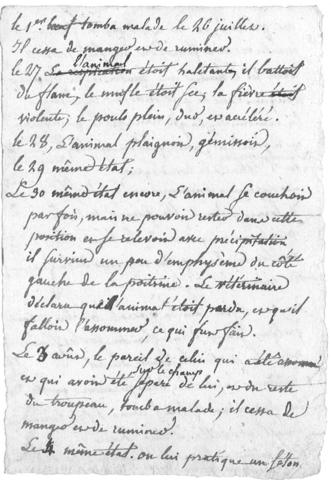 le 1er bœuf tomba malade le 26 juillet.
Il cessa de manger et de ruminer.
l'animal
le 27, La respiration étoit habitante, il battoit
du flanc, le mufle étoit sec, la fièvre étoit
violente; le pouls plein, dur, et accéléré.
le 28, L'animal plaignoit, gémissoit,
le 29 même état;
Le 30 même état encore, L'animal se couchoit
par fois, mais ne pouvoit rester dans cette
position et se relevoit avec précipitation
il survint un peu d'emphysème du côté
gauche de la poitrine. Le vétérinaire
déclara que l'animal étoit perdu, et qu'il
falloit l'assommer, ce qui fut fait.
Le 3 août, le pareil de celui qui a été assommé
sur le champ
et qui avoit été séparé de lui, et du reste
du troupeau, tomba malade; il cessa de
manger et de ruminer.
Le 4 même état. on lui pratique un séton